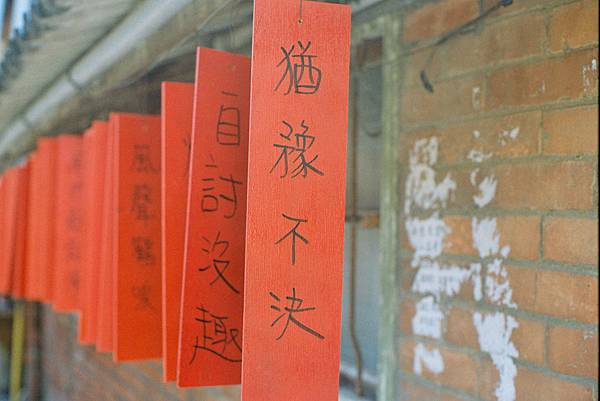 猶豫不決
自討沒趣
風聲鶴唳